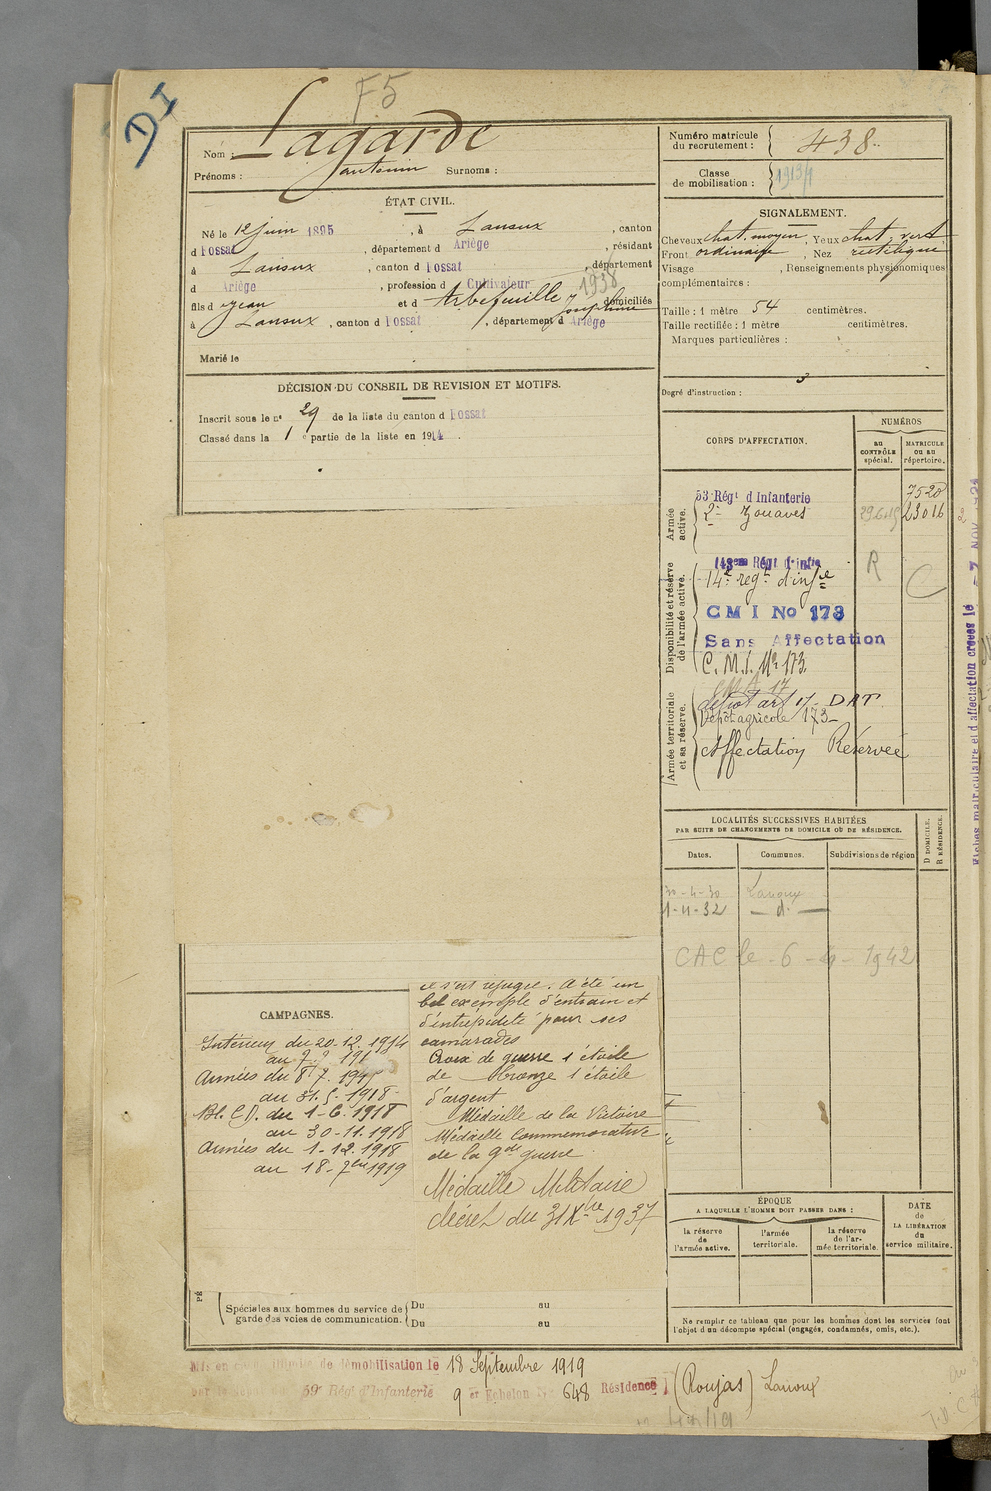 DI
F5
Nom : Lagarde
Prénoms : Antonin Surnoms :
ÉTAT CIVIL.
Né le 12 juin 1895, à Lanoux, canton
d Fossat, département d Ariège, résidant
à Lanoux, canton d Fossat, département
d Ariège, profession d Cultivateur
1938
fils d Jean et d Arbefeuille Joséphine domiciliés
à Lanoux, canton d Fossat, département d Ariège
Marié le
DÉCISION DU CONSEIL DE REVISION ET MOTIFS.
Inscrit sous le n° 29 de la liste du canton d Fossat
Classé dans la 1 e partie de la liste en 1914.
CAMPAGNES.
Intérieur du 20.12.1914
au 7.7.191
Armées du 8.7.191
au 31.5.1918
Bl. C.D. du 1-6.1918
au 30-11.1918
Armées du 1-12.1918
au 18-7bre 1919
se s'est réfugié. A été un
bel exemple d'entrain et
d'intrépidité pour ses
camarades
Croix de guerre 1 étoile
de bronze 1 étoile
d'argent
Médaille de la Victoire
Médaille Commémorative
de la gde guerre
Médaille Militaire
décret du 31 Xbre 1937
Spéciales aux hommes du service de garde des voies de communication.
Du au
Du au
Numéro matricule du recrutement : 438
Classe de mobilisation : 1913
SIGNALEMENT.
Cheveux chat. moyen, Yeux chat. vert
Front ordinaire, Nez rectiligne
Visage , Renseignements physionomiques
complémentaires :
Taille : 1 mètre 54 centimètres.
Taille rectifiée : 1 mètre centimètres.
Marques particulières :
Degré d'instruction : 3
CORPS D'AFFECTATION.
NUMÉROS
au CONTRÔLE spécial.
MATRICULE ou au répertoire.
Armée active.
53 Régt d'Infanterie 7520
2e Zouaves 23016
Disponibilité et réserve de l'armée active.
143eme Régt d'infie
R
C
14e régt d'infie
CMI No 173
Sans Affectation
C.M.I. No 173
Armée territoriale et sa réserve.
dépot art 17 - DAT
Dépôt agricole 173
Affectation Réservée
LOCALITÉS SUCCESSIVES HABITÉES
PAR SUITE DE CHANGEMENTS DE DOMICILE OU DE RÉSIDENCE.
Dates. Communes. Subdivisions de région
D DOMICILE. R RÉSIDENCE.
30-4-30 Lanoux
1-4-32 — d° —
CAC le - 6 - 4 - 1942
ÉPOQUE
A LAQUELLE L'HOMME DOIT PASSER DANS :
la réserve de l'armée active.
l'armée territoriale.
la réserve de l'armée territoriale.
DATE de LA LIBÉRATION du service militaire.
Ne remplir ce tableau que pour les hommes dont les services font
l'objet d'un décompte spécial (engagés, condamnés, omis, etc.).
Mis en congé illimité de démobilisation le 18 Septembre 1919
par le dépôt du 59e Régt d'Infanterie 9 e Echelon No 648 Résidence (Roujas) Lanoux